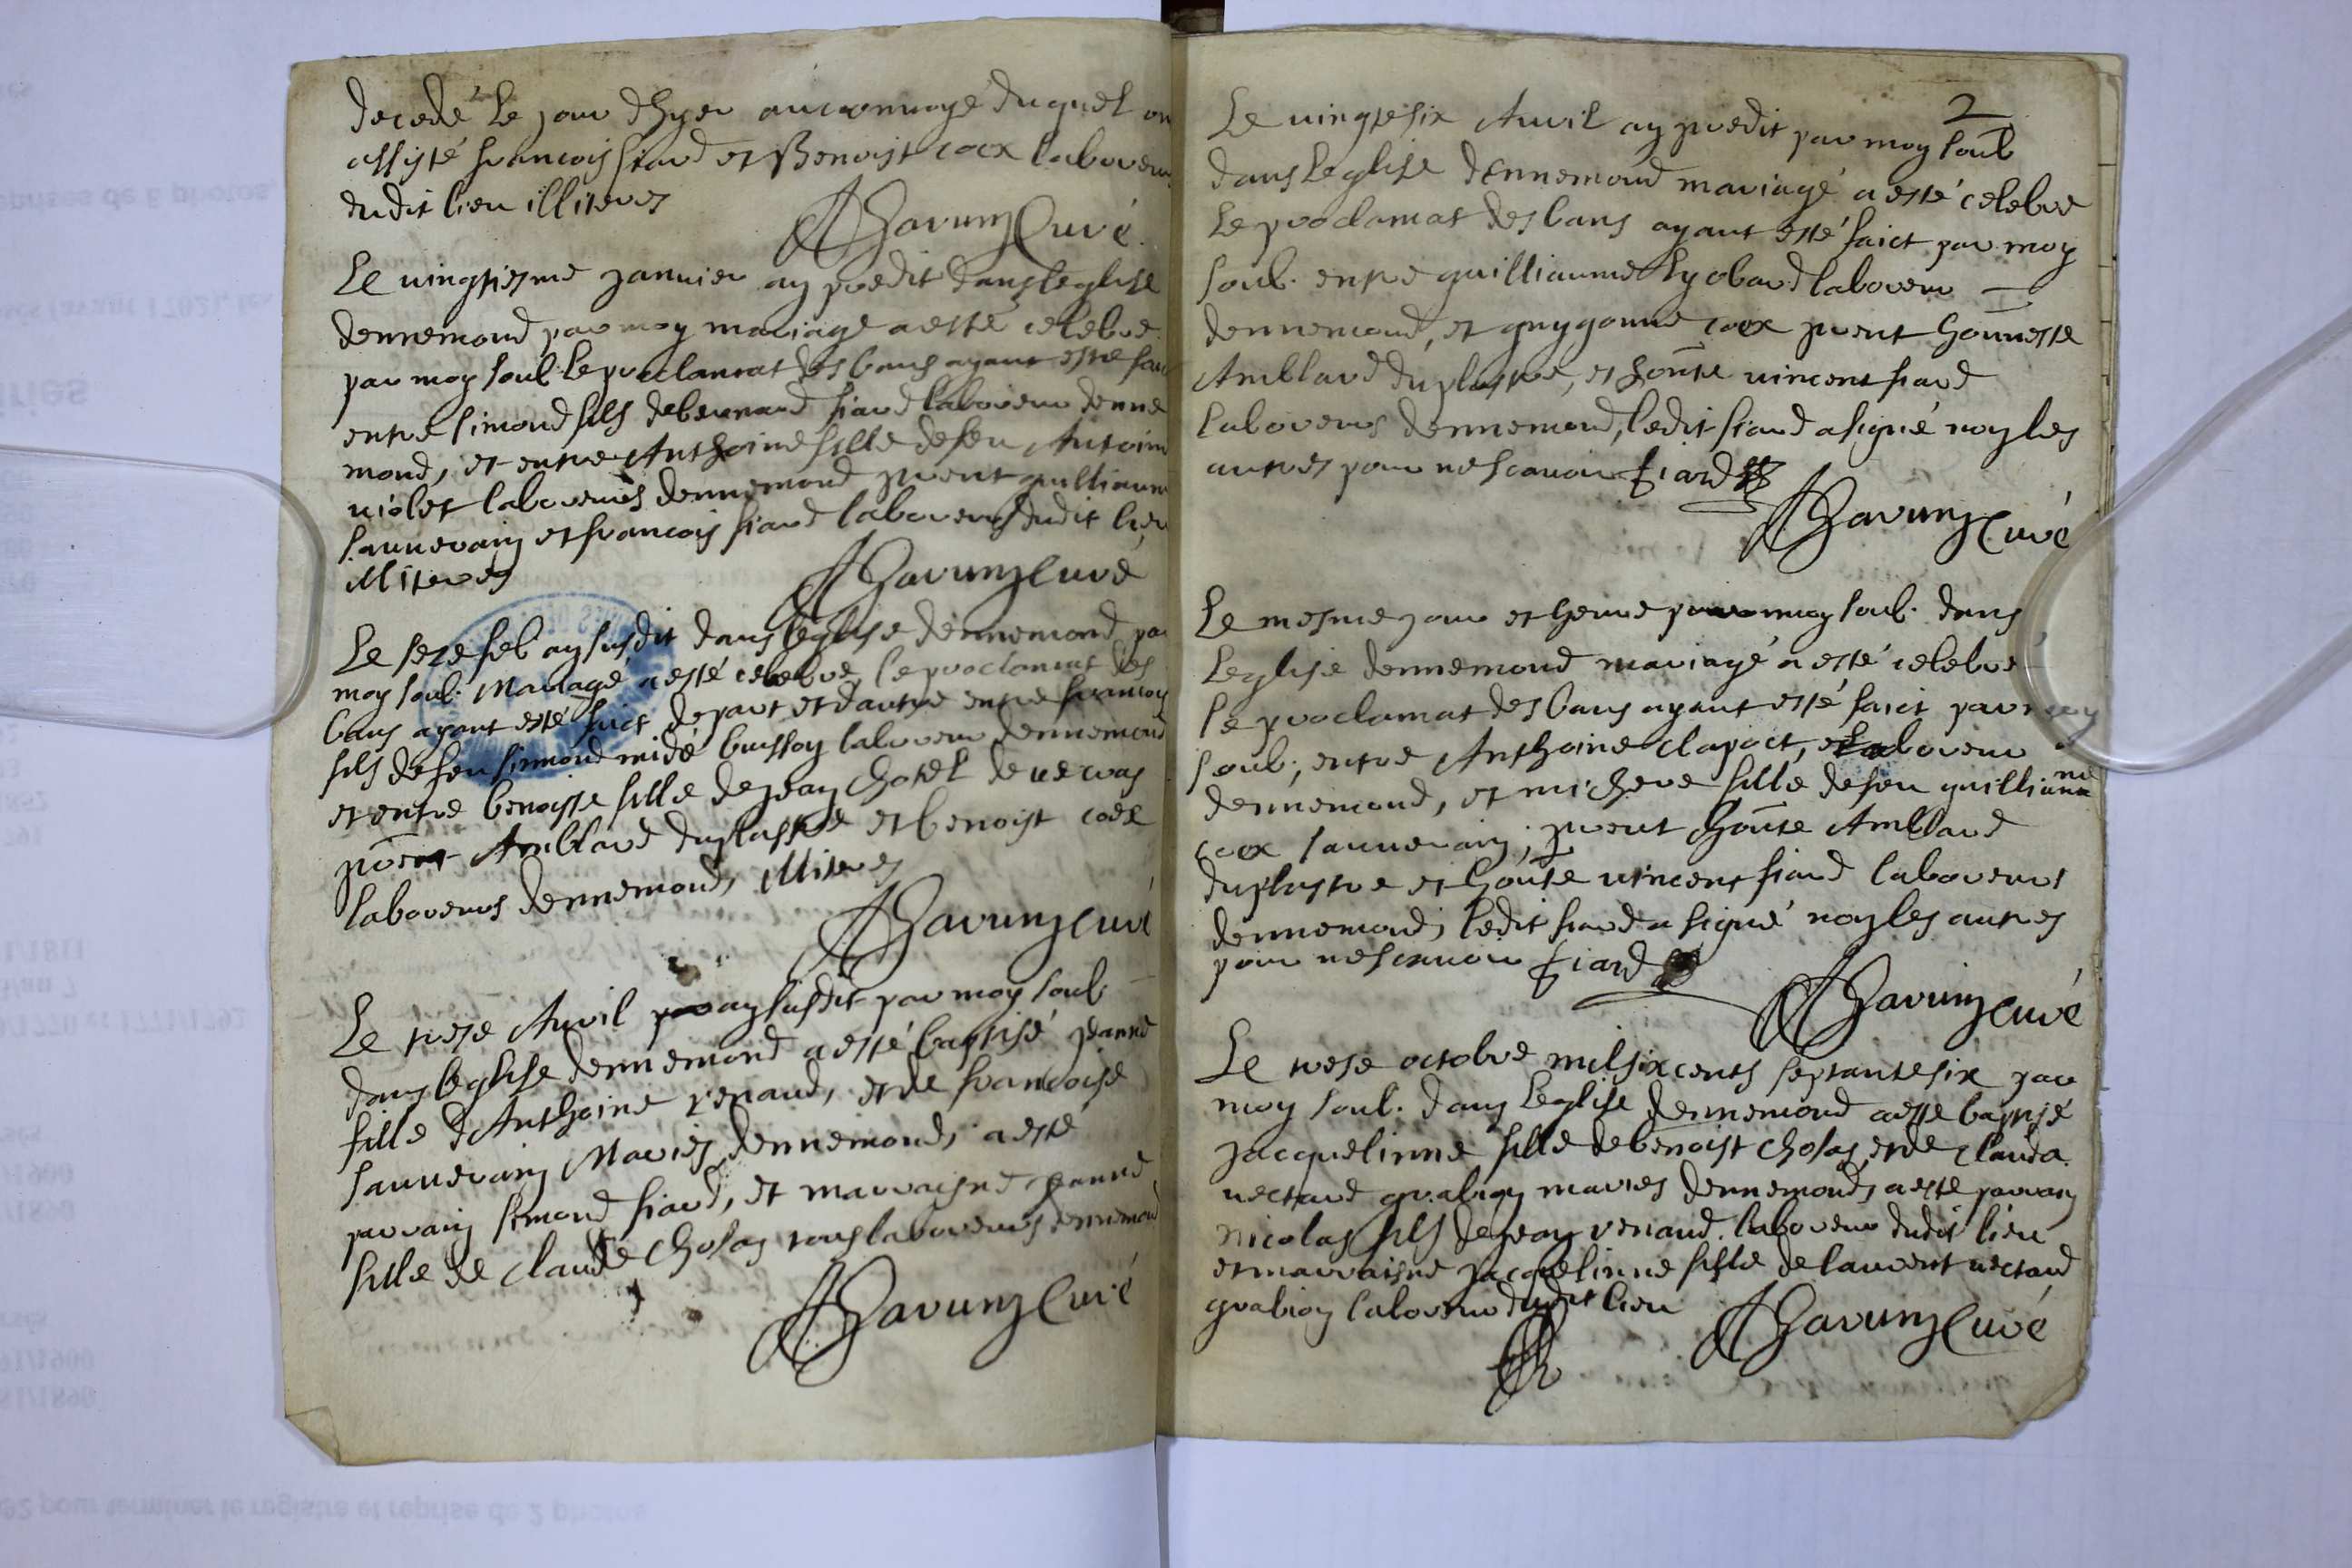 decedé le jour dhyer au convoyé duquel on
assisté francois fiard et Benoist coex laboureurs
dudit lieu illiteres
Harung Curé
Le vingtiesme janvier an predit dans leglise
dennemond par moy mariage a esté celebre
par moy soub. le proclamat des bans ayant esté faic
entre simond fils de bernard fiard laboureur denne
mond, et entre Anthoine fille de feu Antoine
violet laboureurs dennemond pnent guilliaume
sauverain et francois fiard laboureurs dudit lieu
illiteres Harung Curé
Le seze feb an susdit dans leglise dennemond par
moy soub. Mariagé a esté celebre, le proclamat des
bans ayant esté faict depart et dautre entre francois
fils de feu simmond midé buisson laboureur dennemond
et entre benoiste fille de jean Chotel de
pnent Amblard duplastre et benoist coex
laboureurs dennemond, illiteres
Harung Curé
Le treze Avril an susdit par moy soub.
dans leglise dennemond a esté baptisé jeanne
fille d'Anthoine renaud, et de francoise
sauverain Mariés dennemond, a esté
parrain simond fiard, et marraisne jeanne
fille de claude Cholas tous laboureurs dennemond
Harung Curé
2
Le vingtesix Avvil an predit par moy soub
dans leglise dennemond mariagé a esté celebre
Le proclamat des bans ayant esté faict par moy
soub. entre guilliaume Lyobard laboureur
dennemond, et guygonne coex pnent honneste
Amblard duplastre, et honste vincent fiard
laboureurs dennemond, ledit fiard a signé non les
autres pour ne scavoir fiard
Harung Curé
Le mesme jour et heure par moy soub. dans
Leglise dennemond mariagé a esté celebre
le proclamat des bans ayant esté faict par moy
soub, entre Anthoine clapoct, laboureur
dennemond, et michere fille de feu guilliaume
coex sauverain, pnent honste Amblard
duplastre et honste vincent fiard laboureurs
dennemond, ledit fiard a signé non les autres
pour ne scavoir fiard
Harung Curé
Le trese octobre mil six cents septante six par
moy soub. dans Leglise dennemond a esté baptisé
jacquelinne fille de benoist Cholas et de clauda
nectard grabion mariés dennemond, a esté parrain
nicolas fils de jean renaud laboureur dudit lieu
et marraisne jacquelinne fille de laurent nectard
grabion laboureur dudit lieu Harung Curé